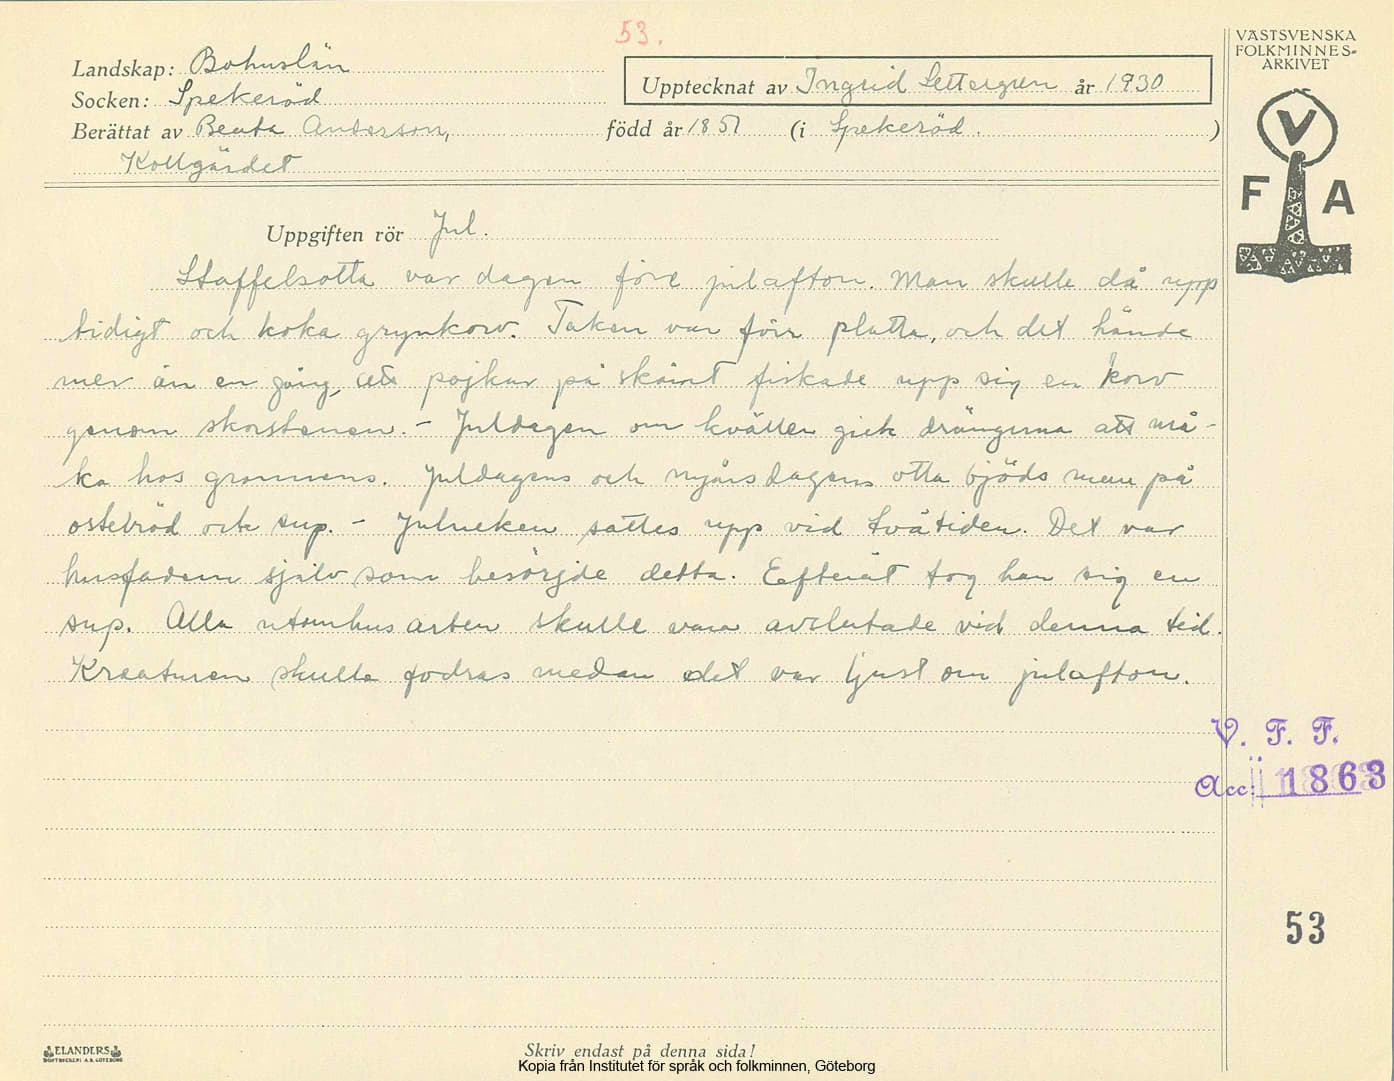 53.
VÄSTSVENSKA
FOLKMINNES-
ARKIVET
Landskap: Bohuslän
Upptecknat av Ingrid Settergren år 1930
Socken: Spekeröd
Berättat av Beata Anderson, född år 1851 (i Spekeröd. )
Kollgärdet
V
F A
Uppgiften rör Jul.
Staffelsotta var dagen före julafton. Man skulle då upp
tidigt och koka grynkorv. Taken var förr platta, och det hände
mer än en gång, att pojkar på skämt fiskade upp sig en korv
genom skorstenen. - Juldagen om kvällen gick drängarna att må-
ka hos grannens. Juldagens och nyårsdagens otta bjöds man på
ostebröd och sup. - Julneken sattes upp vid tvåtiden. Det var
husfadern själv som besörjde detta. Efteråt tog han sig en
sup. Alla utomhusarben skulle vara avslutade vid denna tid.
Kreaturen skulle fodras medan det var ljust om julafton.
V. F. F.
Acc: 1863
53
ELANDERS
BOKTRYCKERI A.B. GÖTEBORG
Skriv endast på denna sida!
Kopia från Institutet för språk och folkminnen, Göteborg